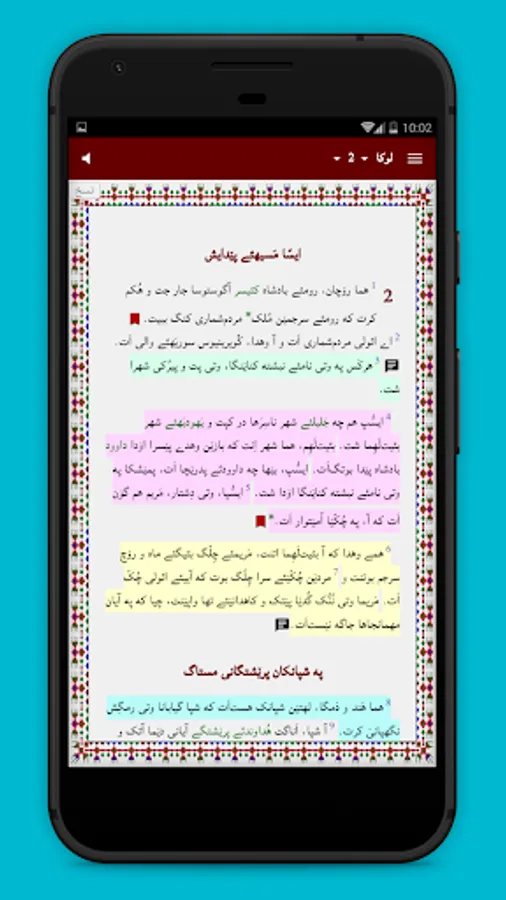 10:02
لوکا 2
نسخ
ایسّا مَسیهئے پێدایش
2 1 هما رۆچان، رومئے بادشاه کئیسر آگوستوسا جار جت و هُکم
کرت که رومئے سرجمێن مُلک* مردم‌شماری کنگ ببیت.
2 اے ائولی مردم‌شماری اَت و آ وهدا، کْویرینیوس سوریَهئے والی اَت.
3 هرکَس په وتی نامئے نبشته کناێنگا، وتی پت و پیرُکی شهرا
شت.
4 ایسُّپ هم چه جَلیلئے شهر ناسِرَها در کپت و یَهودیَهئے شهر
بئیت‌لَهِما شت. بئیت‌لَهِم، هما شهر اِنت که بازێن وهدے پێسرا اۆدا داوود
بادشاه پێدا بوتگ‌اَت. ایسُّپ، بێها چه داوودئے پدرێچا اَت، پمێشکا په
وتی نامئے نبشته کناێنگا اۆدا شت. 5 ایسُّپا، وتی دِشتار، مَریَم هم گۆن
اَت که آ، په چُکّێا اُمێتوار اَت.*
6 همے وهدا که آ بئیت‌لَهِما اتنت، مَریَمئے چِلّگ بئیگئے ماه و رۆچ
سرجم بوتنت و 7 مردێن چُکّێئے سرا چِلّگ بوت که آییئے ائولی چُکّ
اَت. مَریَما وتی نُنُّک گُدێا پێتک و کاهدانێئے تها واپێنت، چیا که په آیان
مهمانجاها جاگه نێست‌اَت.
په شپانکان پرێشتگانی مستاگ
8 هما هَند و دَمگا، لهتێن شپانک هست‌اَت که شپا گیابانا وتی رمگِش
نگهپانیَ کرت. 9 آ شپا، اَناگت هُداوندئے پرێشتگے آیانی دێما آتک و